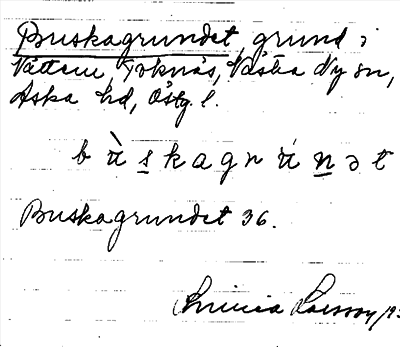 Buskagrundet, grund i
Vättern, Toknäs, Västra Ny sn,
Aska hd, Östg. l.
bùskagrúnət
Buskagrundet 36.
Larsson /193